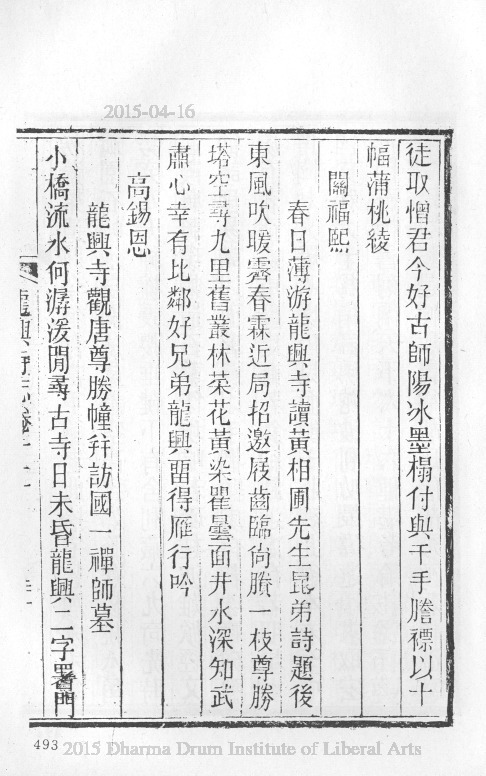 2015-04-16
徒取憎君今好古師陽冰墨榻付與干手謄褾以十
幅蒲桃綾
關福熙
春日薄游龍興寺讀黃相圃先生昆弟詩題後
東風吹暖霽春霖近局招邀屐齒臨尙賸一枝尊勝
塔空尋九里舊叢林菜花黃染瞿曇面井水深知武
肅心幸有比鄰好兄弟龍興畱得雁行吟
高錫恩
龍興寺觀唐尊勝幢幷訪國一禪師墓
小橋流水何潺湲閒尋古寺日未昏龍興二字署門
龍興寺志卷十二
493
2015 Dharma Drum Institute of Liberal Arts